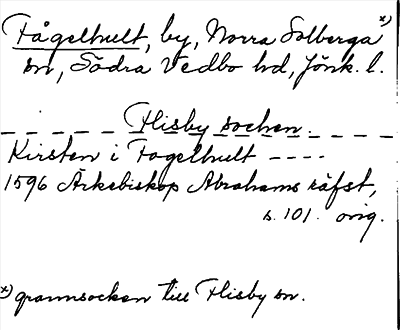 Fågelhult, by, Norra Solberga x)
sn, Södra Vedbo hd, Jönk. l.
Flisby socken.
Kirsten i Fogelhult ----
1596 Ärkebiskop Abrahams räfst,
s. 101. orig.
x) grannsocken till Flisby sn.